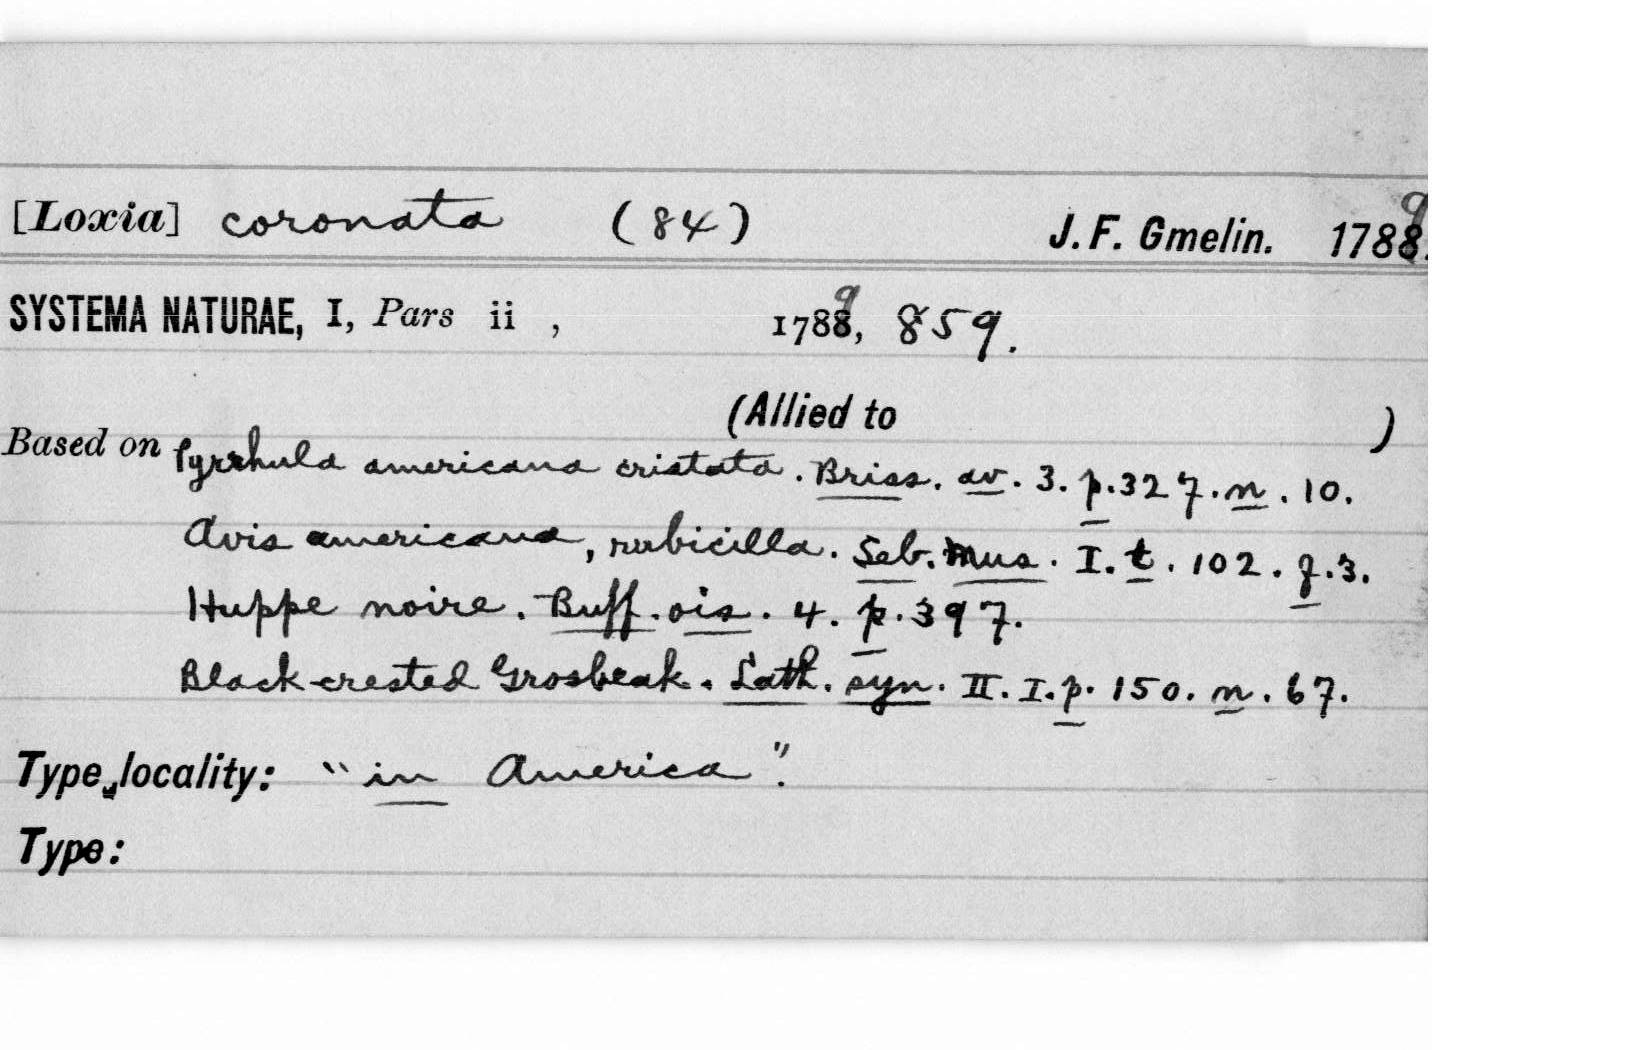 [Loxia] coronata (84) J. F. Gmelin. 1788. 9
SYSTEMA NATURAE, I, Pars ii , 1788, 9 859.
(Allied to )
Based on Pyrrhula americana cristata. Briss. av. 3. p. 327. n. 10.
Avis americana, rubicilla. Seb. Mus. I. t. 102. f. 3.
Huppe noire. Buff. ois. 4. p. 397.
Black-crested Grosbeak. Lath. syn. II. I. p. 150. n. 67.
Type locality: "in America".
Type: